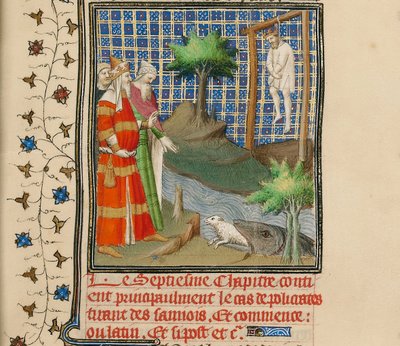 Le Septiesme Chapitre conti
ent principaulment le cas de policrates
tirant des sannois, Et commence:
ou latin, Et sipost et cͨ.